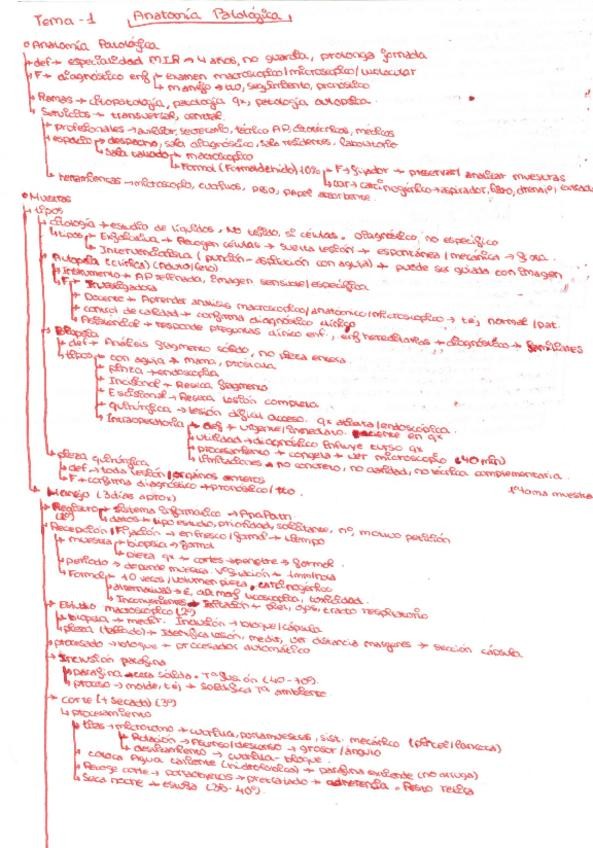 Tema - 1 Anatomía Patológica
Anatomía Patológica
def → especialidad MIR → 4 años, no guardia, prolonga jornada
F → diagnóstico enf → examen macroscópico/microscópico/molecular
manejo → tto, seguimiento, pronóstico
Ramas → citopatología, patología qx, patología autopsia
Servicios → transversal, central
profesionales → auxiliar, secretario, técnico AP, citotécnicos, médicos
espacio → despacho, sala diagnóstico, sala residentes, laboratorio
Sala tallado → macroscópico
Formol (Formaldehído) 10% → F → fijador → preservar/analizar muestras
carcinogénico → aspirador, filtro,
herramientas → microscopio, cuchillos, peso, papel absorbente
Muestras
tipos
citología → estudio de líquidos, No tejido, sí células. diagnóstico, no específico
tipos → Exfoliativa → Recogen células → suelta lesión → espontánea/mecánica →
Intervencionista (punción-aspiración con aguja) → puede ser guiada con imagen
Autopsia (clínica)
instrumento → AP
F → Investigadora
Docente → Aprender análisis macroscópico/anatómico/microscópico → tej normal/pat.
control de calidad → confirma diagnóstico clínico
Asistencial → responde preguntas clínico enf, enf hereditarias → diagnóstico → familiares
Biopsia
def → Análisis fragmento sólido, no pieza entera
tipos → con aguja → mama, próstata
pinza → endoscopia
Incisional → Reseca fragmento
Escisional → Reseca lesión completa
quirúrgica → lesión difícil acceso. qx abierta/endoscópica
Intraoperatoria → def → urgente/inmediato. paciente en qx
utilidad → diagnóstico influye curso qx
procesamiento → congela → ver microscopio <40 min
limitaciones → no concreto, no calidad, no técnica complementaria
pieza quirúrgica
def → toda lesión/órganos enteros
F → confirma diagnóstico → pronóstico/tto
1º toma muestra
Manejo (3 días aprox)
Registro → sistema informático → AnaPath
datos → tipo estudio, prioridad, solicitante, nº, motivo petición
Recepción/Fijación → en fresco/formol → tiempo
muestra → biopsia → formol
pieza qx → cortes → penetre → formol
periodo → depende muestra. 1mm/hora
Formol → 10 veces/volumen pieza, carcinogénico
alternativas →
Inconvenientes → Irritación → piel, ojos, tracto respiratorio
Estudio macroscópico (2º)
biopsia → medir. Inclusión → bloque/cápsula
pieza (tallado) → Identifica lesión, medir, ver distancia márgenes → sección cápsula
procesado → bloque → procesador automático
Inclusión parafina
parafina → cera sólida. Tª fusión
proceso → molde, tej → solidifica Tª ambiente
corte (+ secado) (3º)
procesamiento
tiras → microtomo → cuchilla, portamuestras, sist. mecánico
Rotación → Ascenso/descenso → grosor/ángulo
desplazamiento → cuchilla - bloque
coloca Agua caliente → parafina extiende (no arruga)
Recoge corte → portaobjetos → pretratado → adherencia. Resto
Seca noche → estufa